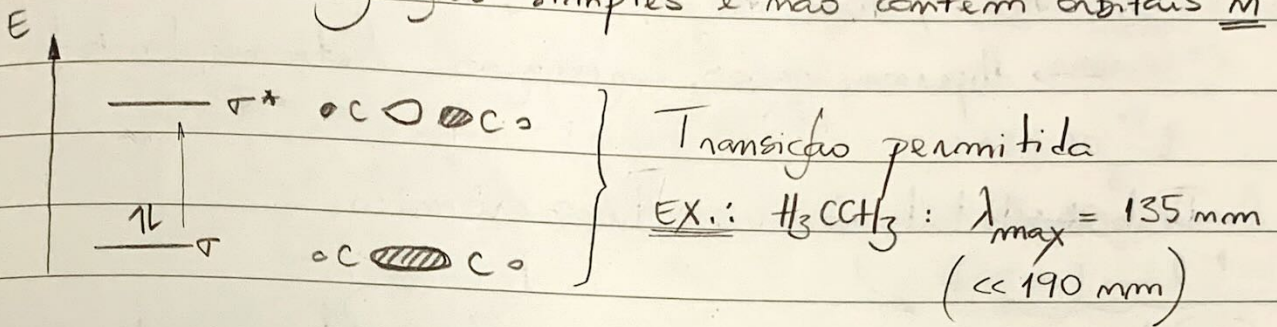 simples e não contém orbitais M
E
σ* C C
Transição permitida
EX.: H₃CCH₃ : λmax = 135 nm
1L σ C C
(<< 190 nm)